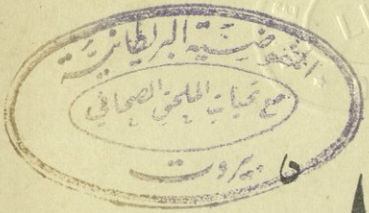 المفوضية البريطانية
مع تحيات الملحق الصحافي
بيروت